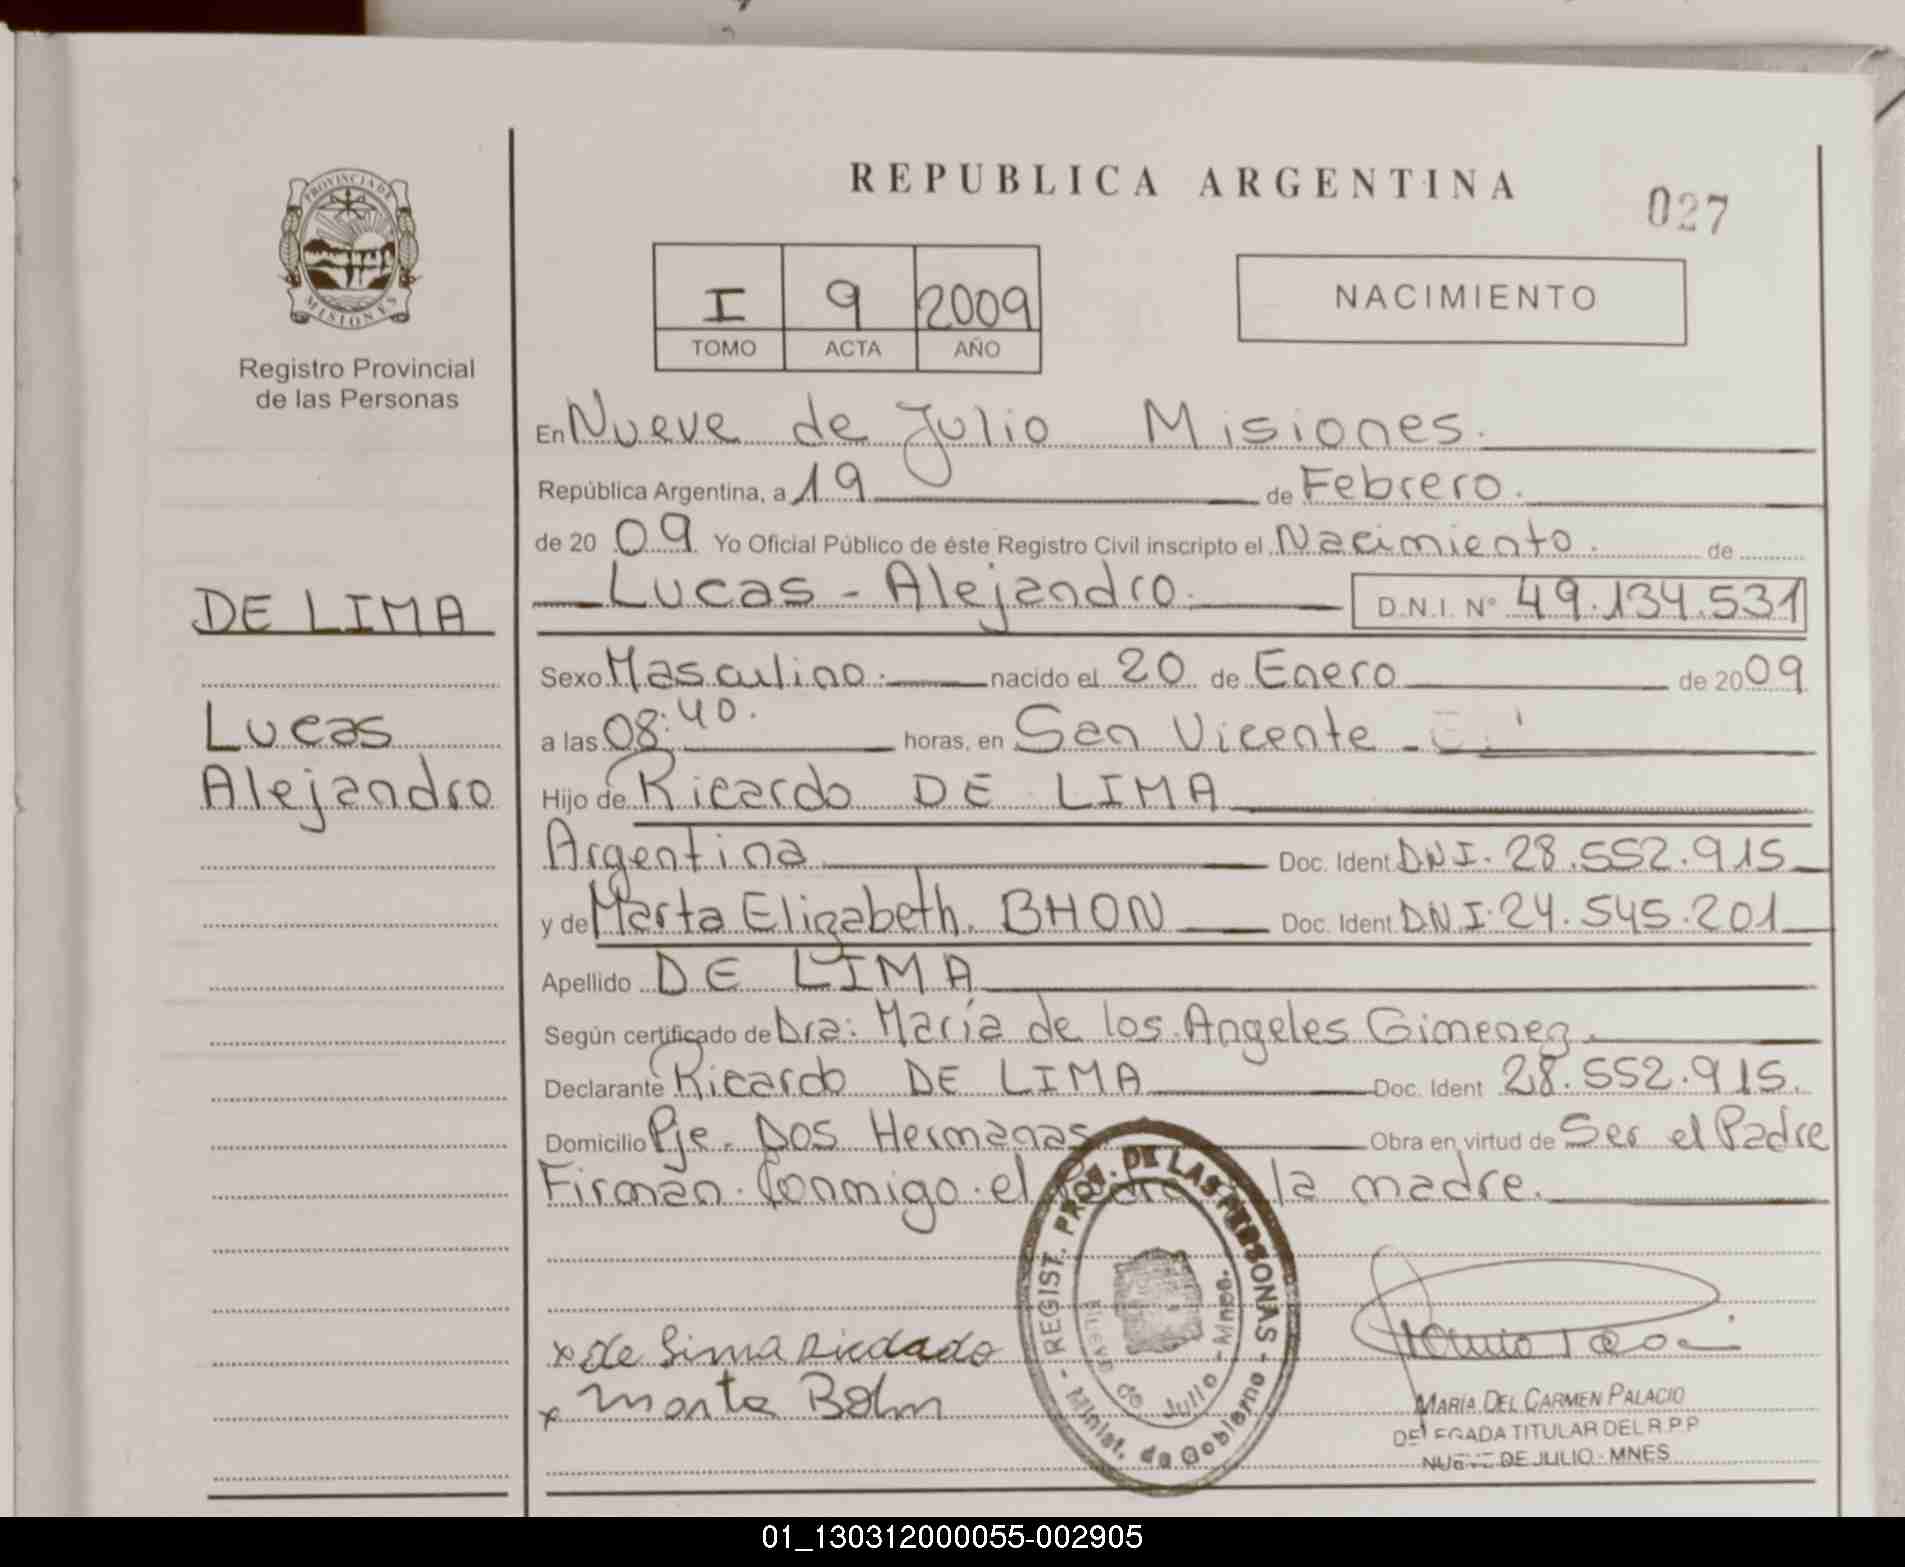 REPUBLICA ARGENTINA
027
PROVINCIA DE
MISIONES
Registro Provincial
de las Personas
I 9 2009
TOMO ACTA AÑO
NACIMIENTO
En Nueve de Julio Misiones.
República Argentina, a 19 de Febrero.
de 2009 Yo Oficial Público de éste Registro Civil inscripto el Nacimiento. de
Lucas - Alejandro. D.N.I. N° 49.134.531
DE LIMA
Lucas
Alejandro
Sexo Masculino. nacido el 20 de Enero de 2009
a las 08:40. horas, en San Vicente -
Hijo de Ricardo DE LIMA
Argentina Doc. Ident DNI. 28.552.915
y de Marta Elizabeth. BHON Doc. Ident DNI. 24.545.201
Apellido DE LIMA
Según certificado de Dra: María de los Angeles Gimenez.
Declarante Ricardo DE LIMA Doc. Ident 28.552.915.
Domicilio Pje. Dos Hermanas Obra en virtud de Ser el Padre
Firman. Conmigo. el Padre la madre.
x de Lima Ricdado
x Marta Bohn
REGIST. PROV. DE LAS PERSONAS
- Minist. de Gobierno -
Nueve de Julio - Mnes.
MARÍA DEL CARMEN PALACIO
DELEGADA TITULAR DEL R.P.P
NUEVE DE JULIO - MNES
01_130312000055-002905